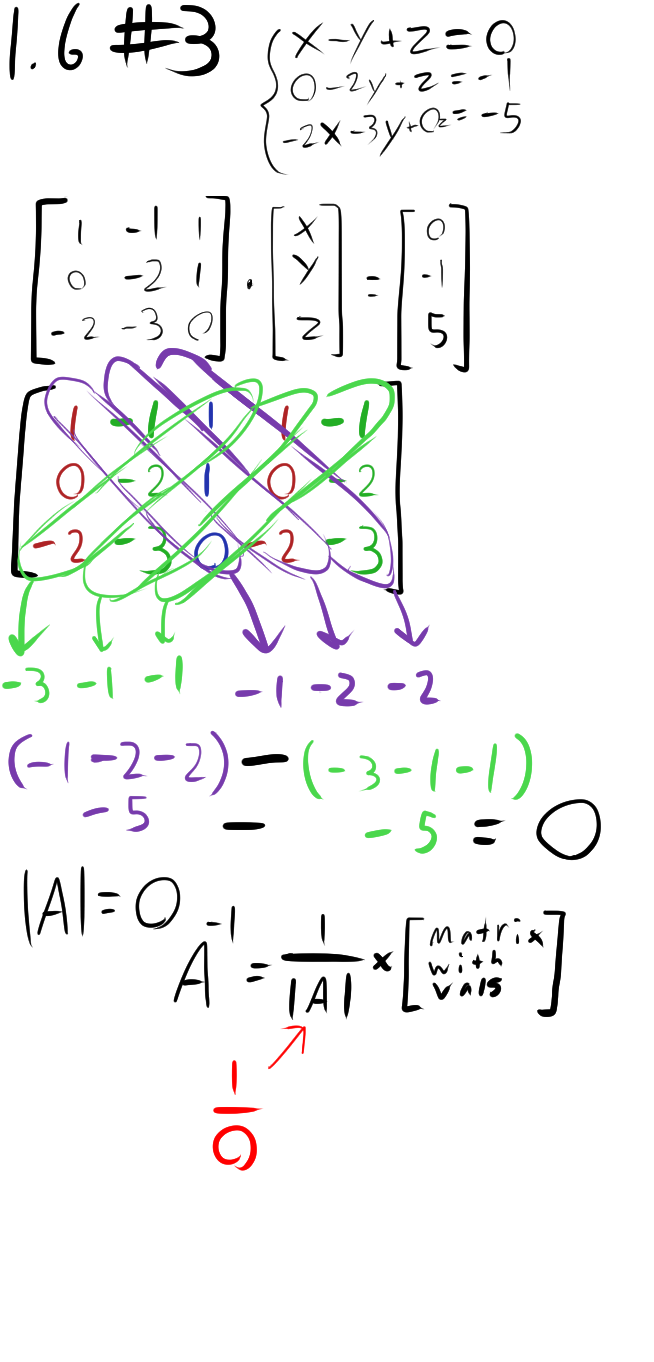 1.6 #3
x-y+z=0
0-2y+z=-1
-2x-3y+0z=-5
1 -1 1
0 -2 1
-2 -3 0
·
x
y
z
=
0
-1
5
1 -1 1 1 -1
0 -2 1 0 -2
-2 -3 0 -2 -3
-3 -1 -1 -1 -2 -2
(-1-2-2)-(-3-1-1)
-5 - -5 = 0
|A|=0
A^-1 = 1/|A| × [matrix
with
vals]
1/0